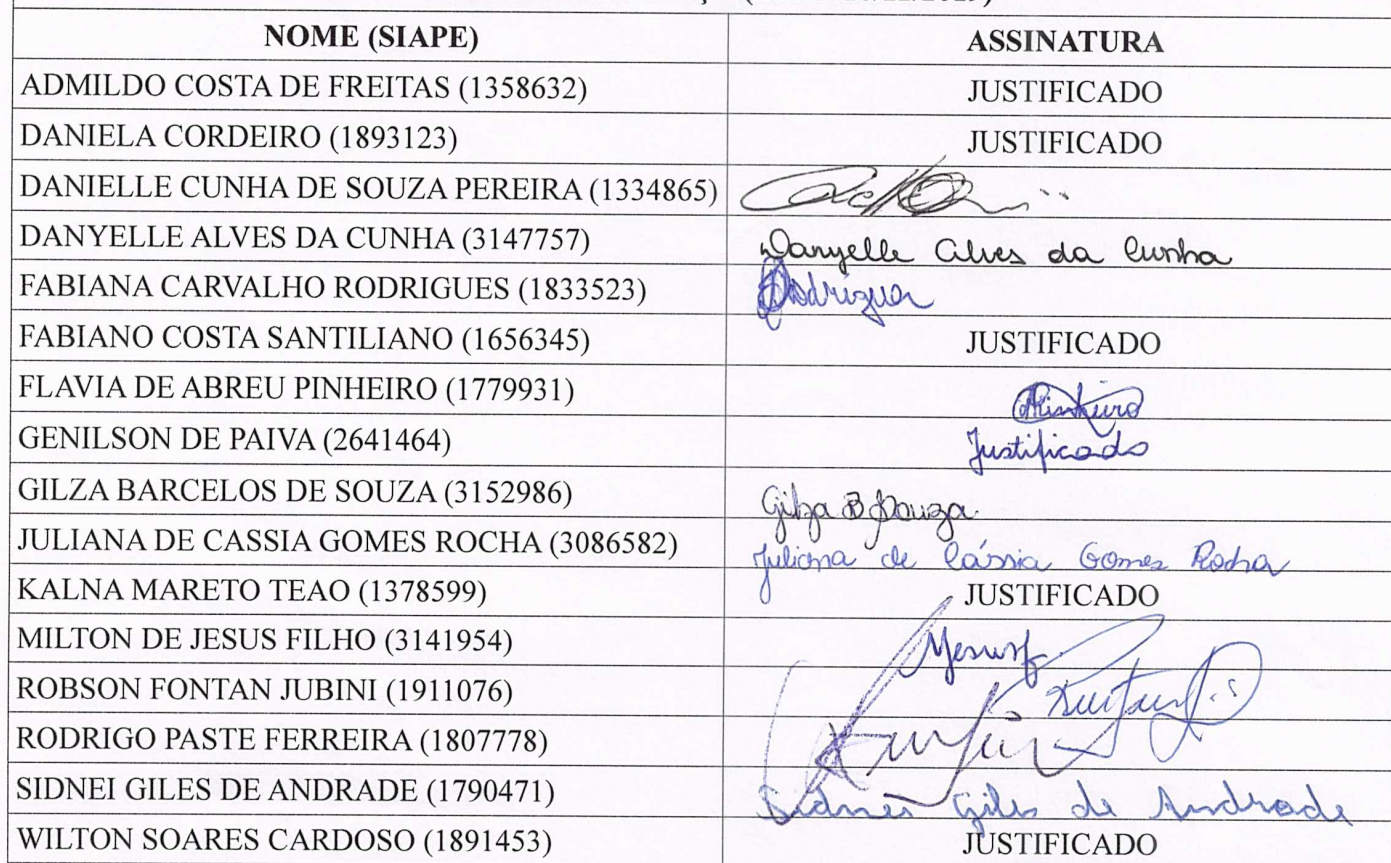 NOME (SIAPE) ASSINATURA
ADMILDO COSTA DE FREITAS (1358632) JUSTIFICADO
DANIELA CORDEIRO (1893123) JUSTIFICADO
DANIELLE CUNHA DE SOUZA PEREIRA (1334865)
DANYELLE ALVES DA CUNHA (3147757) Danyelle Alves da Cunha
FABIANA CARVALHO RODRIGUES (1833523)
FABIANO COSTA SANTILIANO (1656345) JUSTIFICADO
FLAVIA DE ABREU PINHEIRO (1779931) Pinheiro
GENILSON DE PAIVA (2641464) Justificado
GILZA BARCELOS DE SOUZA (3152986) Gilza B Souza
JULIANA DE CASSIA GOMES ROCHA (3086582) Juliana de Cássia Gomes Rocha
KALNA MARETO TEAO (1378599) JUSTIFICADO
MILTON DE JESUS FILHO (3141954)
ROBSON FONTAN JUBINI (1911076)
RODRIGO PASTE FERREIRA (1807778)
SIDNEI GILES DE ANDRADE (1790471) Sidnei Giles de Andrade
WILTON SOARES CARDOSO (1891453) JUSTIFICADO